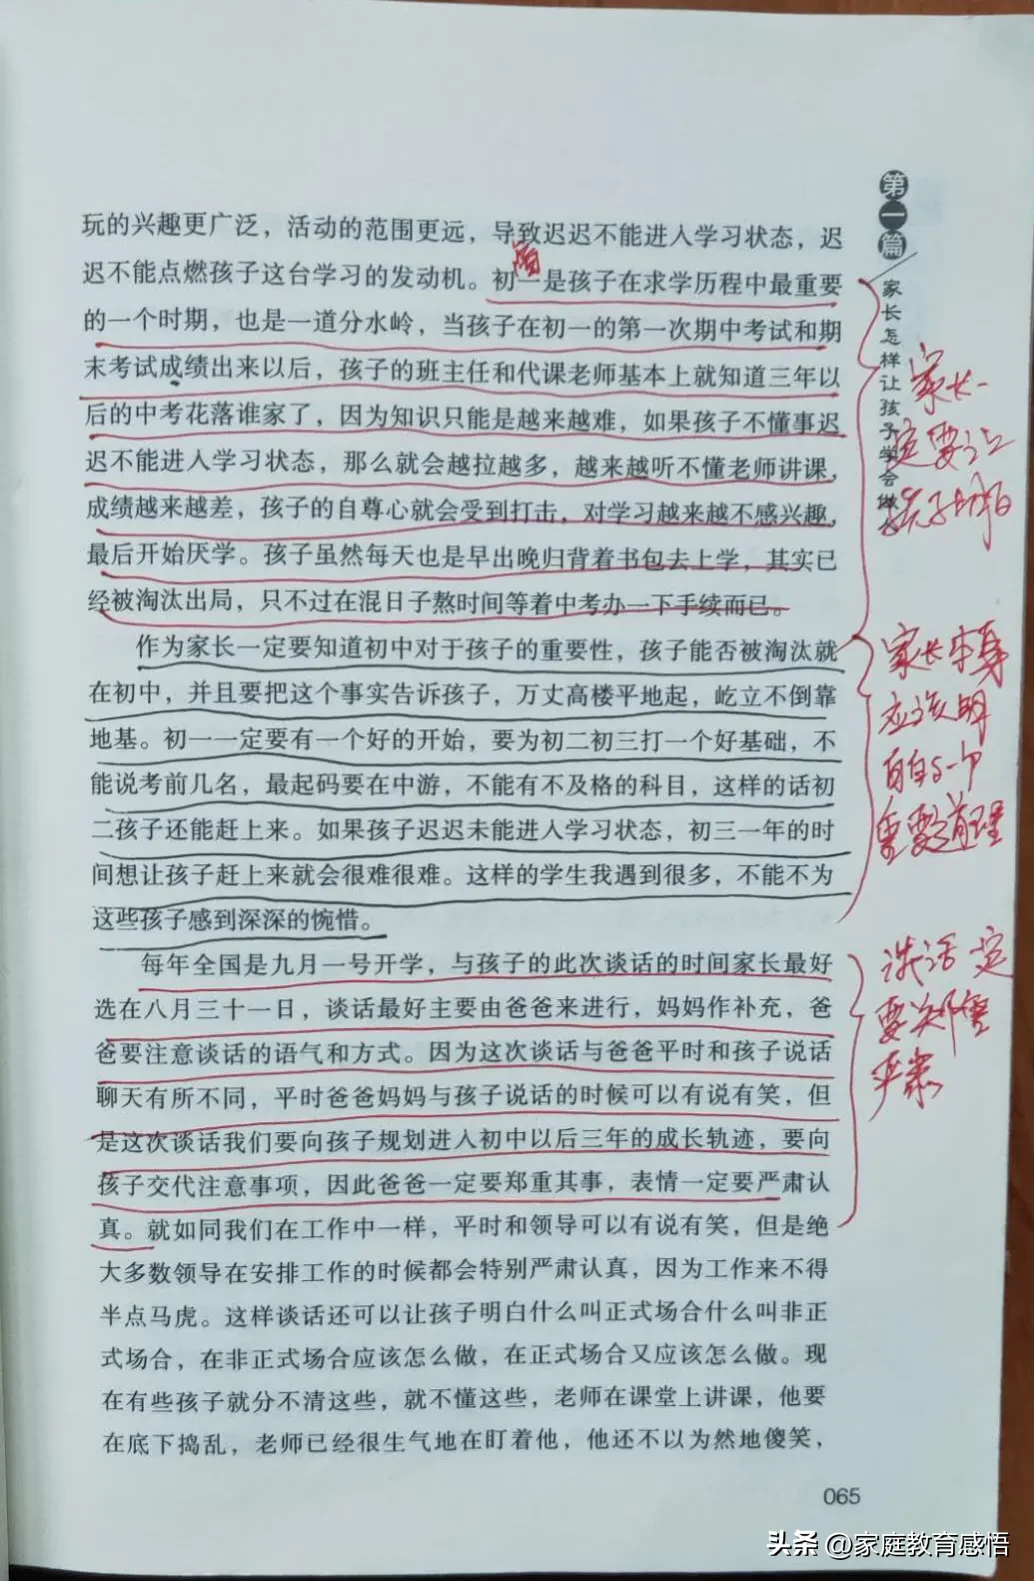 玩的兴趣更广泛，活动的范围更远，导致迟迟不能进入学习状态，迟
迟不能点燃孩子这台学习的发动机。初一是孩子在求学历程中最重要
的一个时期，也是一道分水岭，当孩子在初一的第一次期中考试和期
末考试成绩出来以后，孩子的班主任和代课老师基本上就知道三年以
后的中考花落谁家了，因为知识只能是越来越难，如果孩子不懂事迟
迟不能进入学习状态，那么就会越拉越多，越来越听不懂老师讲课，
成绩越来越差，孩子的自尊心就会受到打击，对学习越来越不感兴趣，
最后开始厌学。孩子虽然每天也是早出晚归背着书包去上学，其实已
经被淘汰出局，只不过在混日子熬时间等着中考办一下手续而已。
作为家长一定要知道初中对于孩子的重要性，孩子能否被淘汰就
在初中，并且要把这个事实告诉孩子，万丈高楼平地起，屹立不倒靠
地基。初一一定要有一个好的开始，要为初二初三打一个好基础，不
能说考前几名，最起码要在中游，不能有不及格的科目，这样的话初
二孩子还能赶上来。如果孩子迟迟未能进入学习状态，初三一年的时
间想让孩子赶上来就会很难很难。这样的学生我遇到很多，不能不为
这些孩子感到深深的惋惜。
每年全国是九月一号开学，与孩子的此次谈话的时间家长最好
选在八月三十一日，谈话最好主要由爸爸来进行，妈妈作补充，爸
爸要注意谈话的语气和方式。因为这次谈话与爸爸平时和孩子说话
聊天有所不同，平时爸爸妈妈与孩子说话的时候可以有说有笑，但
是这次谈话我们要向孩子规划进入初中以后三年的成长轨迹，要向
孩子交代注意事项，因此爸爸一定要郑重其事，表情一定要严肃认
真。就如同我们在工作中一样，平时和领导可以有说有笑，但是绝
大多数领导在安排工作的时候都会特别严肃认真，因为工作来不得
半点马虎。这样谈话还可以让孩子明白什么叫正式场合什么叫非正
式场合，在非正式场合应该怎么做，在正式场合又应该怎么做。现
在有些孩子就分不清这些，就不懂这些，老师在课堂上讲课，他要
在底下捣乱，老师已经很生气地在盯着他，他还不以为然地傻笑，
第一篇
家长怎样让孩子学会做人
家长一
定要让
孩子明白
家长本身
应该明
白的一个
重要道理
谈话一定
要郑重
严肃
065
头条 @家庭教育感悟